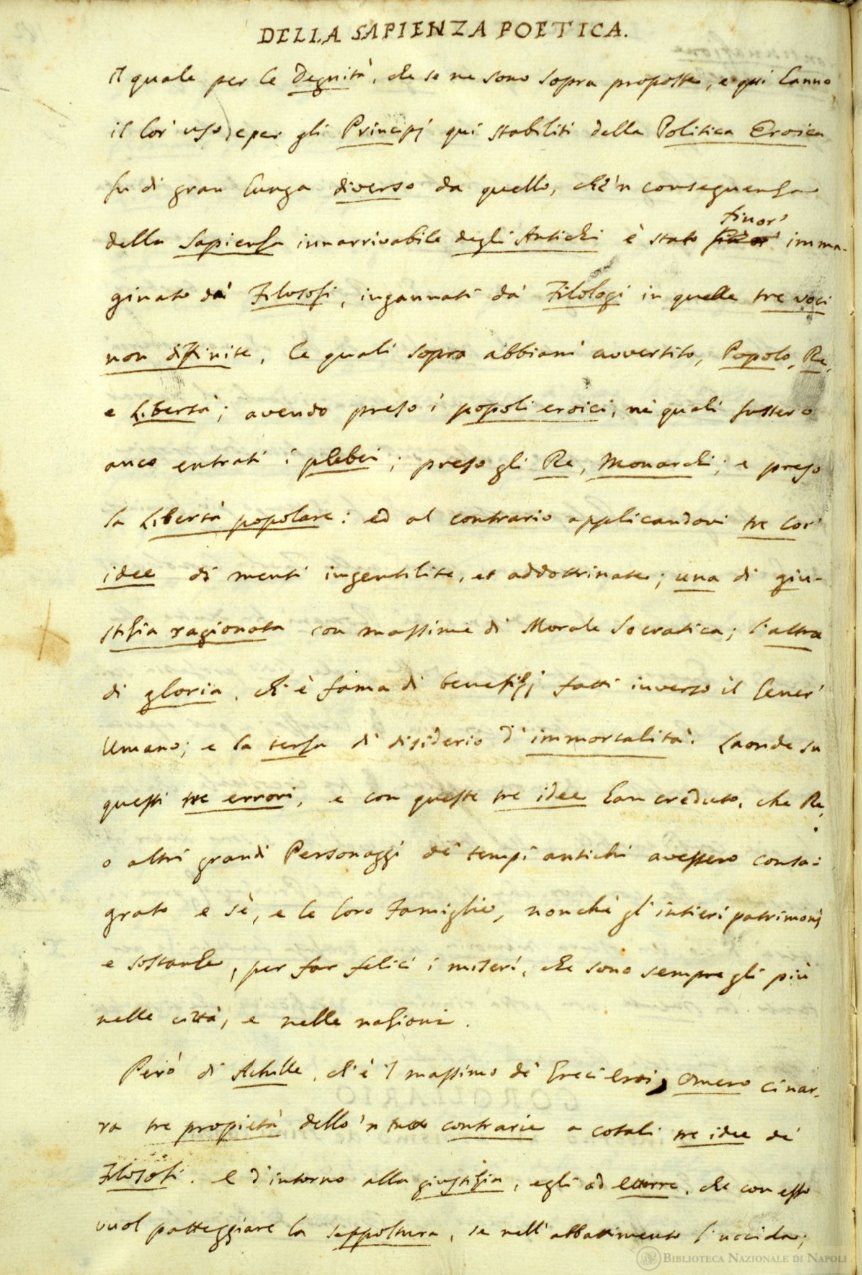 DELLA SAPIENZA POETICA.
il quale per le Degnità, che se ne sono sopra proposte, e qui hanno
il lor' uso, e per gli Principj qui stabiliti della Politica Eroica
fu di gran lunga diverso da quello, ch'è'n conseguenza
della Sapienza innarrivabile degli Antichi è stato finor' imma-
ginato da' Filosofi, ingannati da' Filologi in quelle tre voci
non difinite, le quali sopra abbiam' avvertito, Popolo, Re,
e Libertà; avendo preso i popoli eroici, ne' quali fussero
anco entrati i plebei; preso gli Re, Monarchi; e preso
la Libertà popolare: ed al contrario applicandovi tre lor'
idee di menti ingentilite, et addottrinate; una di giu-
stizia ragionata con massime di Morale Socratica; l'altra
di gloria, ch'è fama di benefizj fatti inverso il Gener'
Umano; e la terza di disiderio d'immortalità. Laonde su
questi tre errori, e con queste tre idee han creduto, che Re,
o altri grandi Personaggi de' tempi antichi avessero consa-
grato e sè, e le loro Famiglie, nonchè gl'intieri patrimonj
e sostanze, per far felici i miseri, che sono sempre gli più
nelle città, e nelle nazioni.
Però di Achille, ch'è 'l massimo de' Greci Eroi, Omero ci nar-
ra tre propietà dello 'n tutto contrarie a cotali tre idee de'
Filosofi. E d'intorno alla giustizia, egli ad Ettorre, che con esso
vuol patteggiare la seppoltura, se nell'abbattimento l'uccida;
BIBLIOTECA NAZIONALE DI NAPOLI